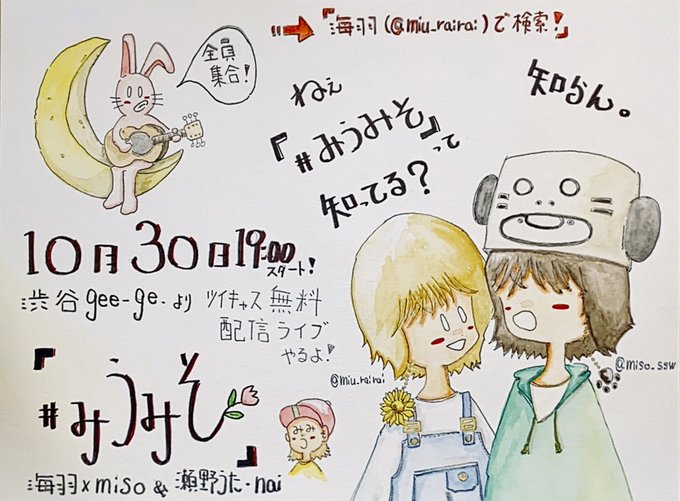 『海羽(@miu_rairai)で検索!』
全員
集合!
ねぇ
『#みうみそ』って
知ってる?
知らん。
10月30日19:00
スタート!
渋谷gee-ge.より ツイキャス無料
配信ライブ
やるよ!
『#みうみそ』
みみ
海羽×miso&瀬野うた・nai
@miu_rairai
@miso_ssw